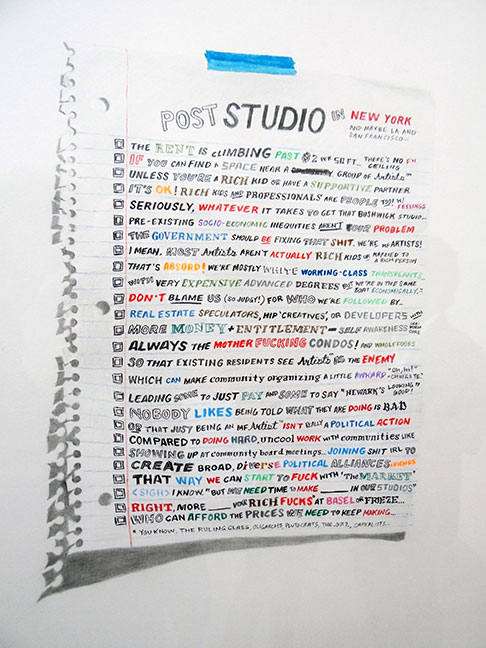 POST STUDIO IN NEW YORK
AND MAYBE LA AND
SAN FRANCISCO...
THE RENT IS CLIMBING PAST $2 PER SQ FT... THERE'S NO F'N CEILING
IF YOU CAN FIND A SPACE NEAR A GROUP OF ARTISTS
UNLESS YOU'RE A RICH KID OR HAVE A SUPPORTIVE PARTNER
IT'S OK! RICH KIDS AND PROFESSIONALS ARE PEOPLE TOO! W/ FEELINGS
SERIOUSLY, WHATEVER IT TAKES TO GET THAT BUSHWICK STUDIO...
PRE-EXISTING SOCIO-ECONOMIC INEQUITIES AREN'T YOUR PROBLEM
THE GOVERNMENT SHOULD BE FIXING THAT SHIT. WE'RE MF ARTISTS!
I MEAN, MOST ARTISTS AREN'T ACTUALLY RICH KIDS OR MARRIED TO A RICH PERSON
THAT'S ABSURD! WE'RE MOSTLY WHITE WORKING-CLASS TRANSPLANTS
WITH VERY EXPENSIVE ADVANCED DEGREES WE'RE IN THE SAME BOAT ECONOMICALLY
DON'T BLAME US (SO JUDGY!) FOR WHO WE'RE FOLLOWED BY...
REAL ESTATE SPECULATORS, HIP 'CREATIVES', OR DEVELOPERS
MORE MONEY + ENTITLEMENT — SELF AWARENESS
ALWAYS THE MOTHER FUCKING CONDOS! AND WHOLE FOODS
SO THAT EXISTING RESIDENTS SEE "ARTISTS" AS THE ENEMY
WHICH CAN MAKE COMMUNITY ORGANIZING A LITTLE AWKARD "OH, HI!"
LEADING SOME TO JUST PAY AND SOME TO SAY "NEWARK'S LOOKING GOOD!
NOBODY LIKES BEING TOLD WHAT THEY ARE DOING IS BAD
OR THAT JUST BEING AN MF "ARTIST" ISN'T REALLY A POLITICAL ACTION
COMPARED TO DOING HARD, UNCOOL WORK WITH COMMUNITIES LIKE
SHOWING UP AT COMMUNITY BOARD MEETINGS... JOINING SHIT IRL TO
CREATE BROAD, DIVERSE POLITICAL ALLIANCES
THAT WAY WE CAN START TO FUCK WITH 'THE MARKET'
<SIGH> I KNOW "BUT WE NEED TIME TO MAKE _____ IN OUR STUDIOS"
RIGHT, MORE _____ YOUR RICH FUCKS AT BASEL OR FRIEZE...
WHO CAN AFFORD THE PRICES WE NEED TO KEEP MAKING...
* YOU KNOW, THE RULING CLASS, OLIGARCHS, PLUTOCRATS, THE .01%, CAPITALISTS...